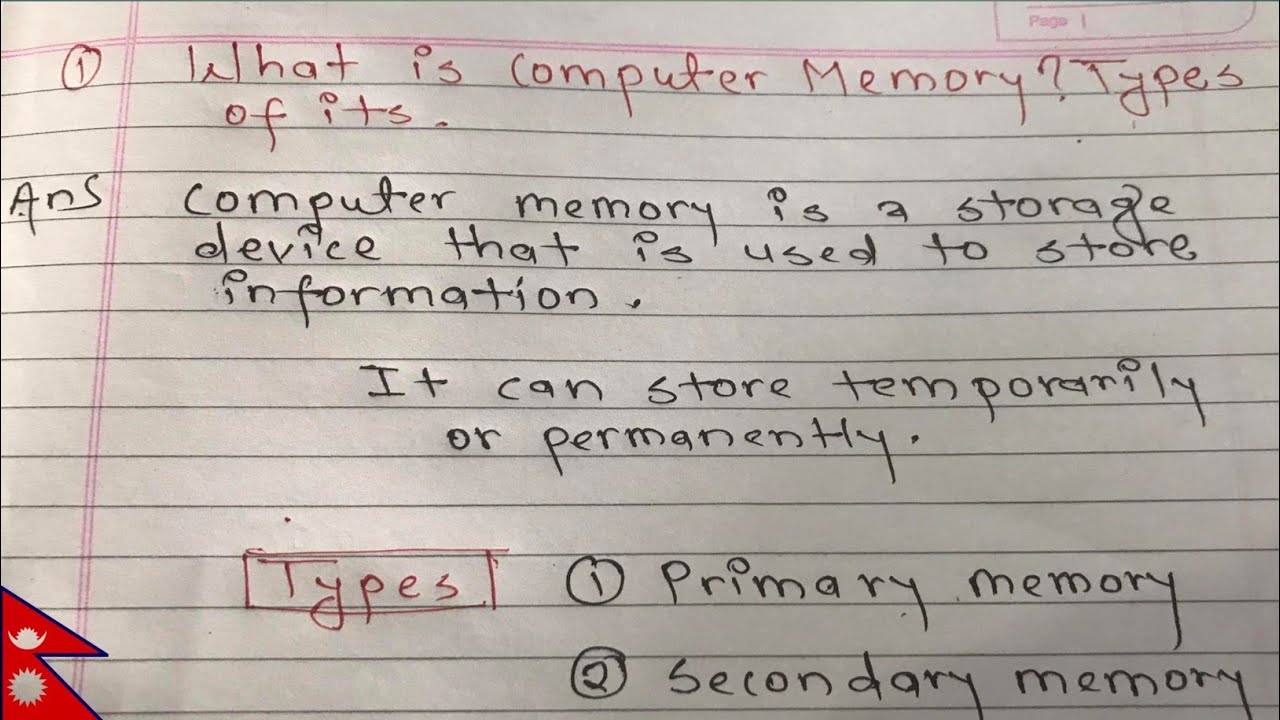 Page 1
① What is computer Memory? Types
of its.
Ans computer memory is a storage
device that is used to store
information.
It can store temporarily
or permanently.
Types ① Primary memory
② Secondary memory